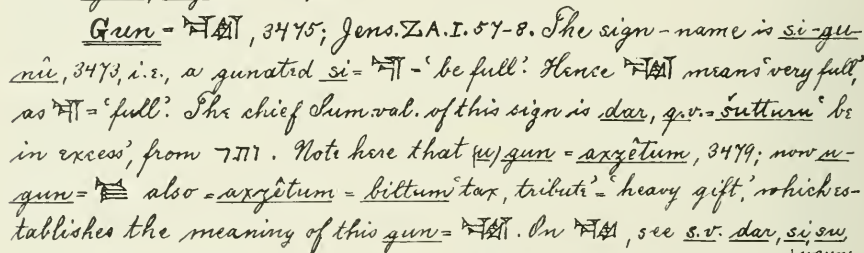 Gun = 𒁯, 3475; Jens. ZA. I. 57-8. The sign-name is si-gu-
nû, 3473, i.e., a gunated si = 𒋛 = ‘be full’. Hence 𒁯 means ‘very full,’
as 𒋛 = ‘full’. The chief Sum. val. of this sign is dar, q.v. = šutturu ‘be
in excess’, from ותר. Note here that (u) gun = axzêtum, 3479; now u-
gun = also = axzêtum = biltum ‘tax, tribute’ = ‘heavy gift,’ which es-
tablishes the meaning of this gun = 𒁯. On 𒁯, see s.v. dar, si, su,